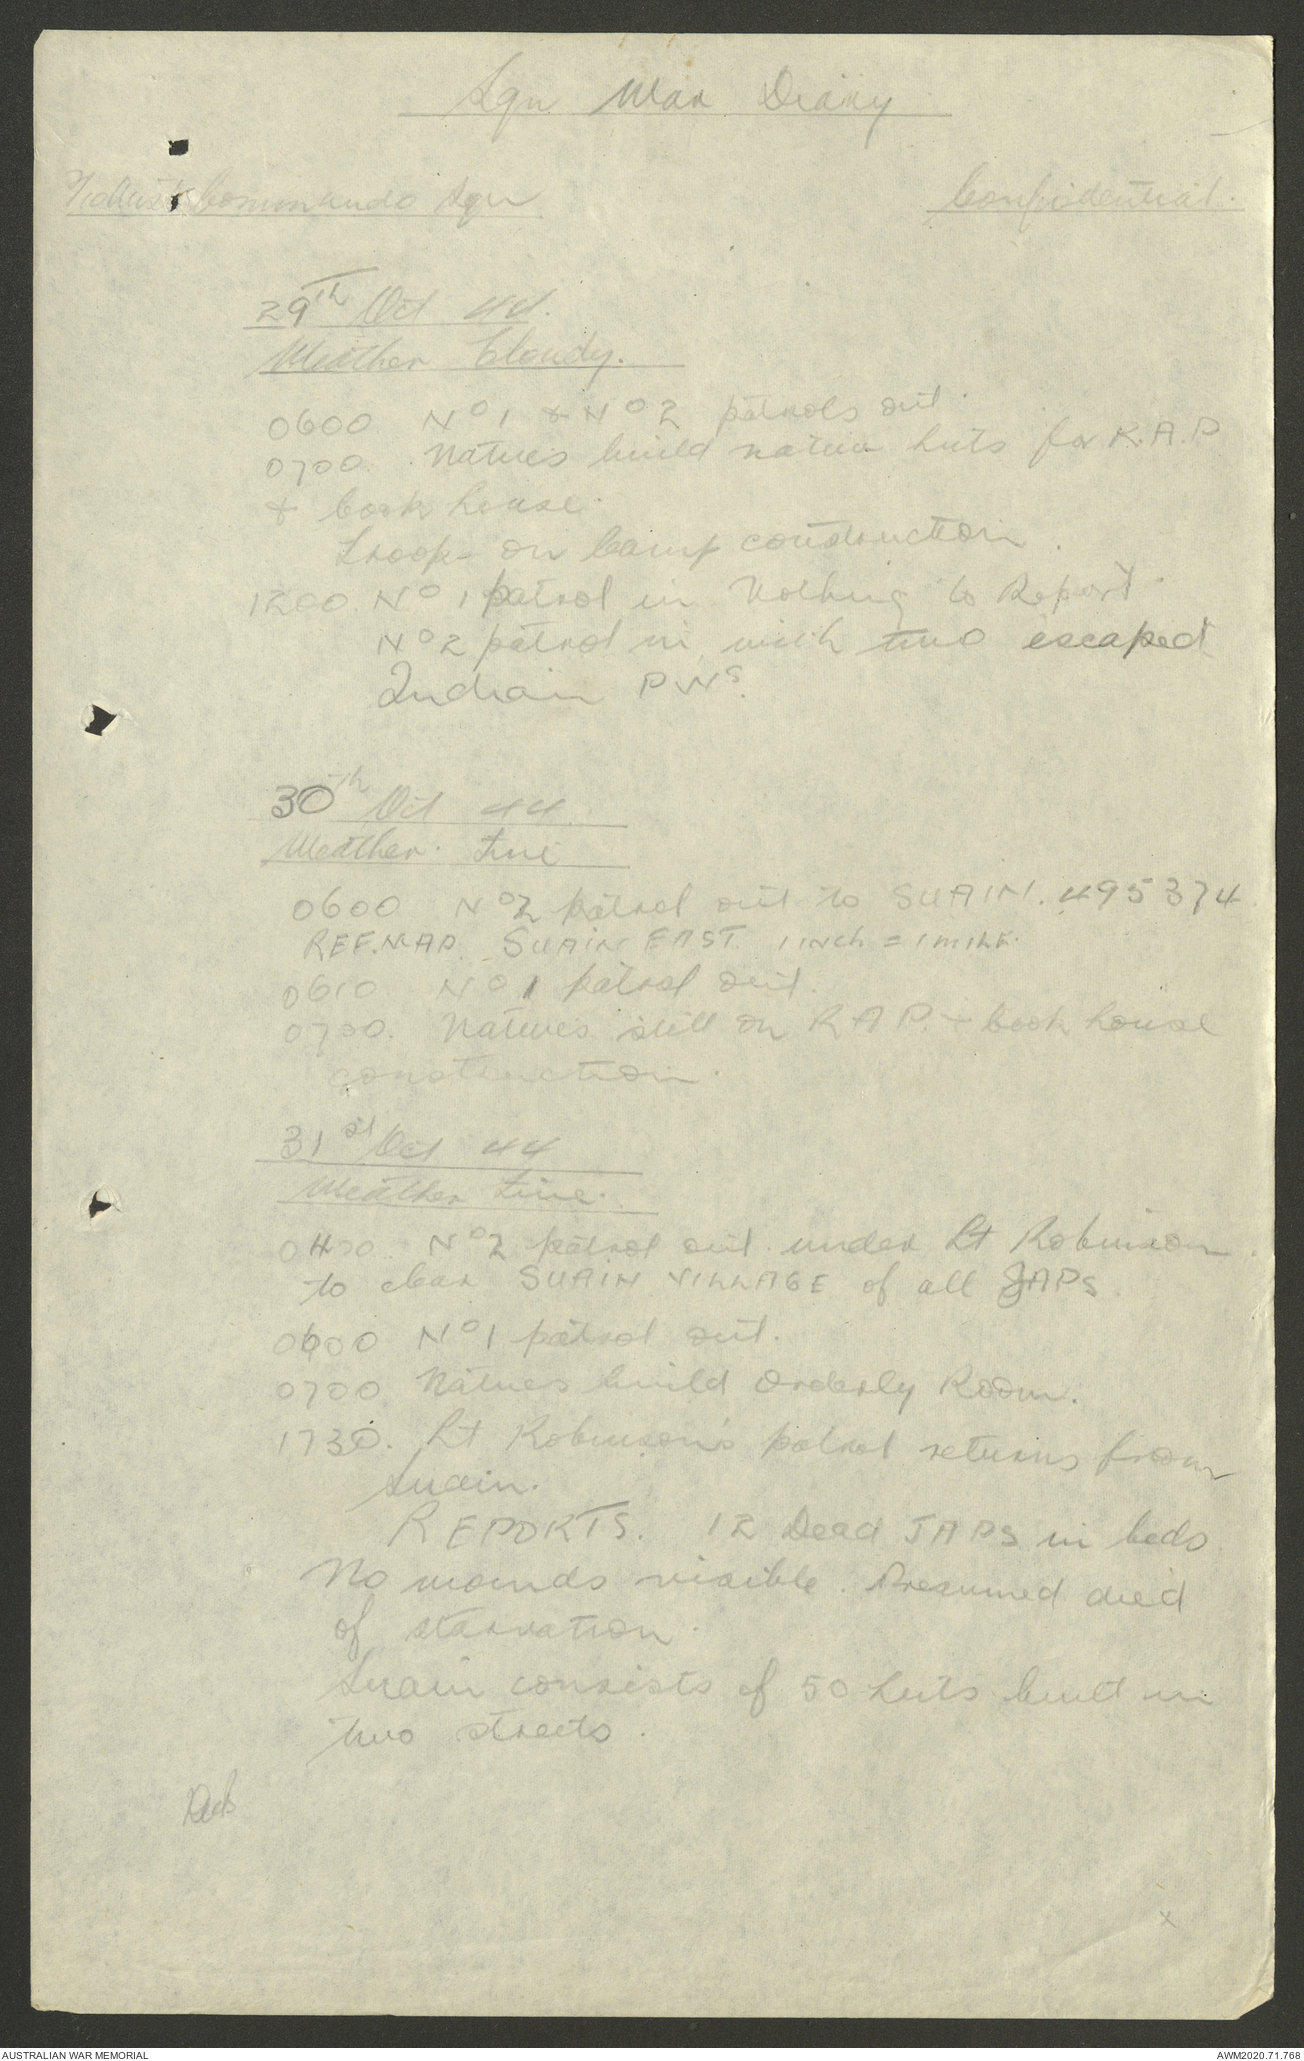 Sqn War Diary
Aust Commando Sqn
Confidential.
29th Oct 44.
Weather Cloudy.
0600 No 1 & No 2 patrols out.
0700. Natives build native huts for R.A.P
& cook house.
Troops on camp construction.
1200. No 1 patrol in. Nothing to Report.
No 2 patrol in with two escaped
Indian PWs.
30th Oct 44.
Weather. Fine
0600 No 2 patrol out to SUAIN. 495374.
REF.MAP. SUAIN EAST. 1 INCH = 1 MILE.
0610. No 1 patrol out.
0700. Natives still on RAP. + cook house
construction.
31st Oct 44
Weather Fine.
0400. No 2 patrol out under Lt Robinson.
to clear SUAIN VILLAGE of all JAPS.
0600 No 1 patrol out.
0700 Natives build Orderly Room.
1730. Lt Robinson's patrol returns from
Suain.
REPORTS. 12 Dead JAPS in beds.
No wounds visible. Presumed died
of starvation.
Suain consists of 50 huts built in
two streets.
x
AUSTRALIAN WAR MEMORIAL
AWM2020.71.768